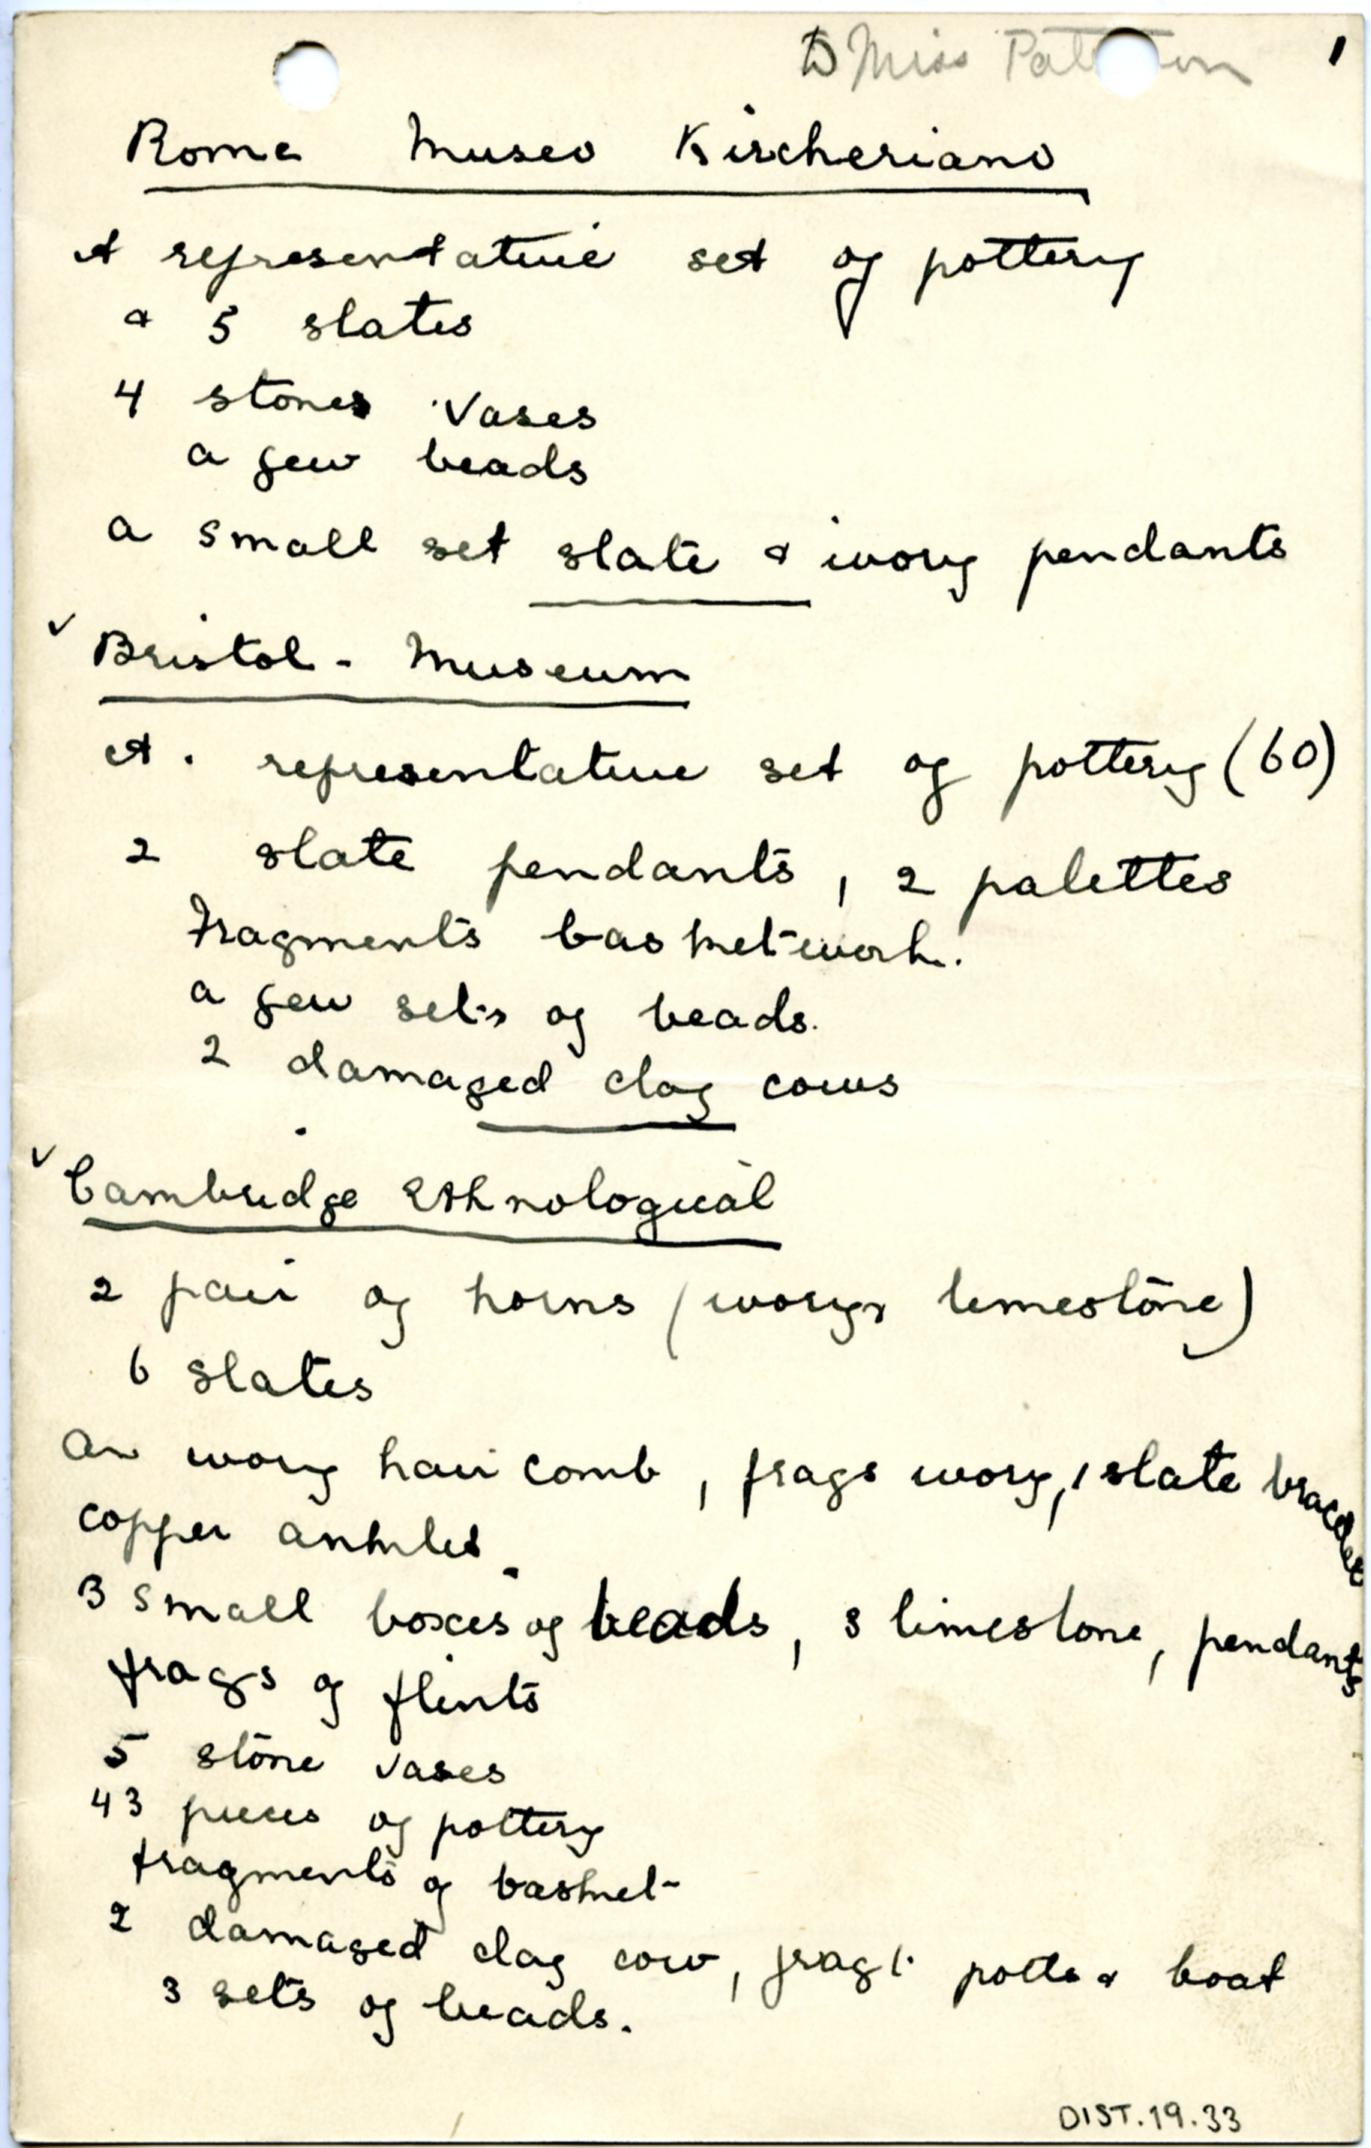 Miss 1
Rome Museo Kircheriano
A representative set of pottery
& 5 slates
4 stones vases
a few beads
a small set slate & ivory pendants
✓ Bristol - Museum
A. representative set of pottery (60)
2 slate pendants, 2 palettes
fragments basketwork.
a few sets of beads.
2 damaged clay cows
✓ Cambridge Ethnological
2 pair of horns (ivory, limestone)
6 slates
An ivory hair comb, frags ivory, 1 slate bracelet
copper anklet.
3 small boxes of beads, 3 limestone, pendants
frags of flints
5 stone vases
43 pieces of pottery
fragments of basket
2 damaged clay cow, fragt. potte & boat
3 sets of beads.
DIST.19.33